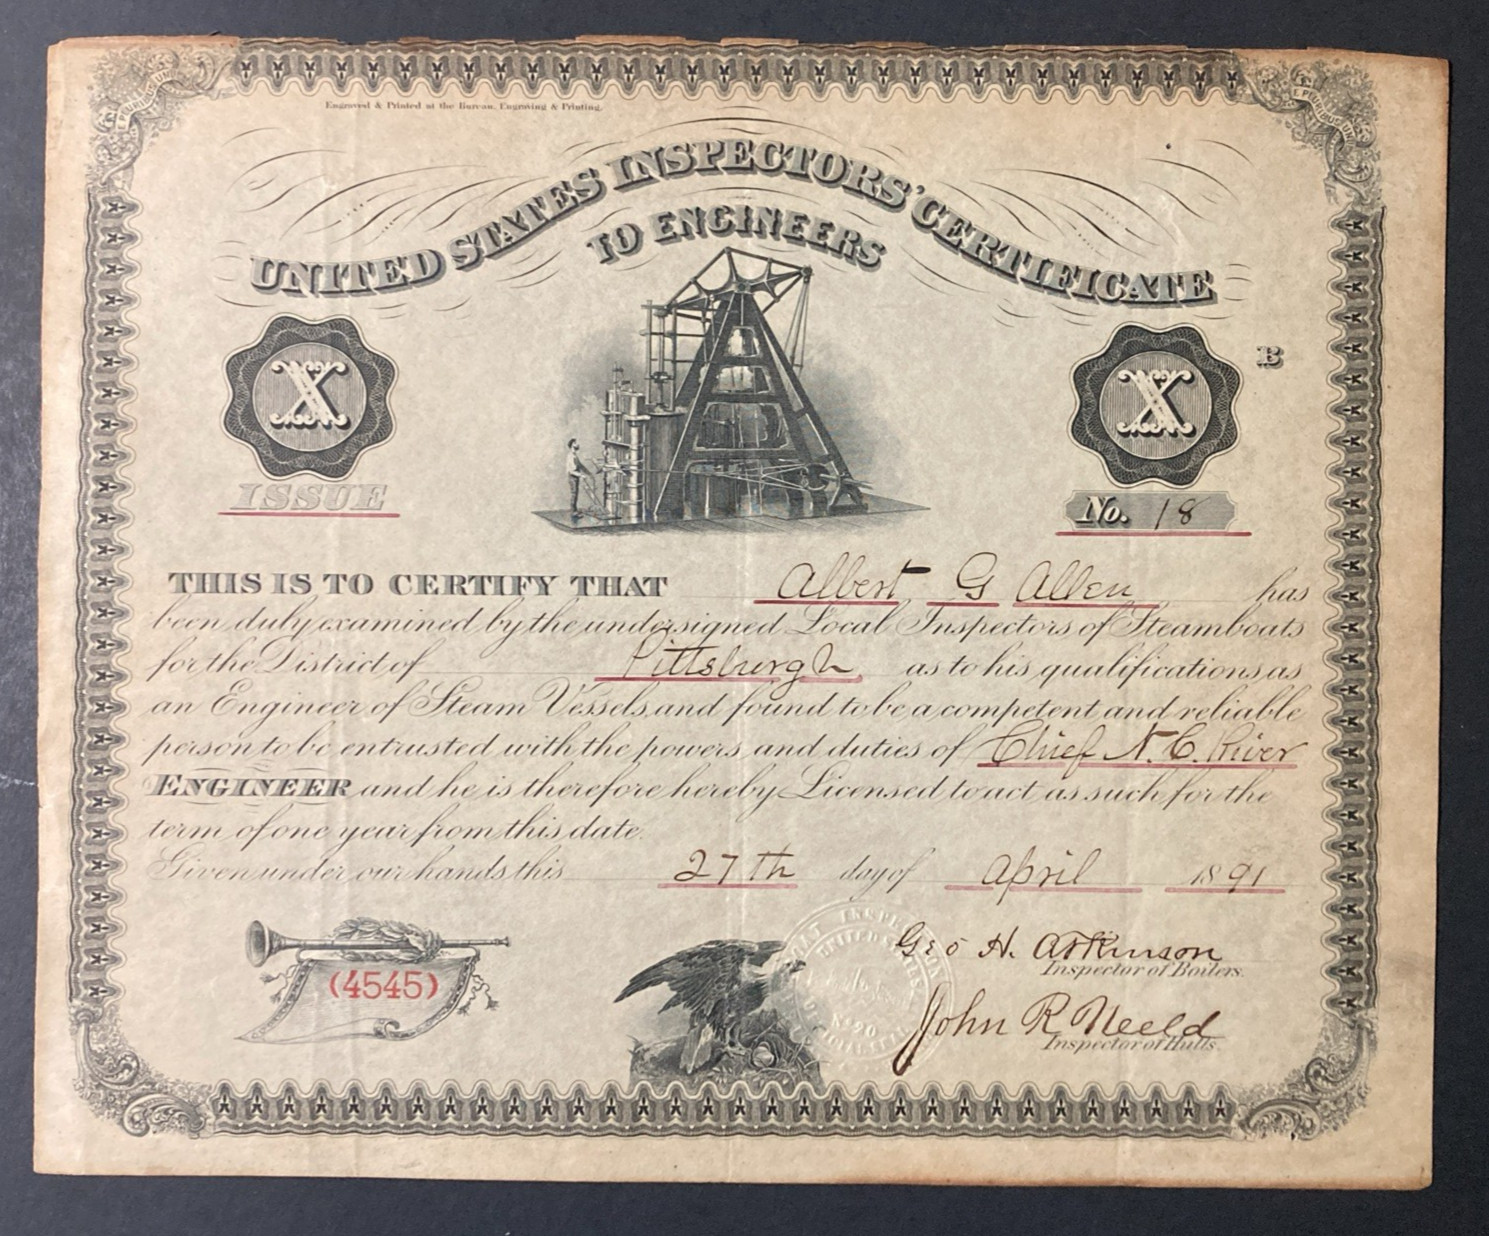 E PLURIBUS UNUM
E PLURIBUS UNUM
Engraved & Printed at the Bureau, Engraving & Printing.
UNITED STATES INSPECTORS' CERTIFICATE
TO ENGINEERS
X
X
B
ISSUE
No. 18
THIS IS TO CERTIFY THAT Albert G Allen has
been duly examined by the undersigned Local Inspectors of Steamboats
for the District of Pittsburgh as to his qualifications as
an Engineer of Steam Vessels, and found to be a competent and reliable
person to be entrusted with the powers and duties of Chief N. C. River
ENGINEER and he is therefore hereby Licensed to act as such for the
term of one year from this date.
Given under our hands this 27th day of April 1891
(4545)
UNITED STATES
Geo H. Atkinson
Inspector of Boilers.
John R Neeld
Inspector of Hulls.